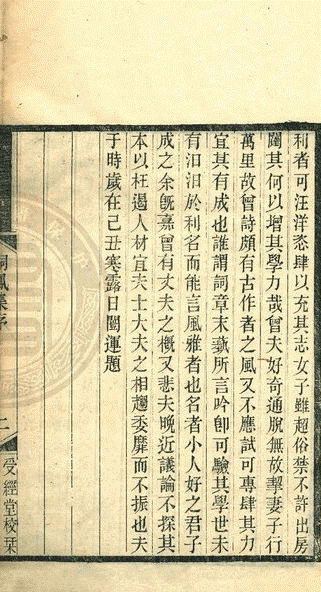 利者可汪洋悉肆以充其志女子雖超俗禁不許出房
闥其何以增其學力哉曾夫好奇通脫無放挈妻子行
萬里故曾詩頗有古作者之風又不應試可專肆其力
宜其有成也誰謂詞章末蓺所言吟卽可驗其學世未
有汨汨於利名而能言風雅者也名者小人好之君子
成之余旣嘉曾有丈夫之槪又悲夫晚近議論不探其
本以枉遏人材宜夫士大夫之相趨委靡而不振也夫
于時歲在己丑寒露日闓運題
桐鳳集序
二
受經堂校栞